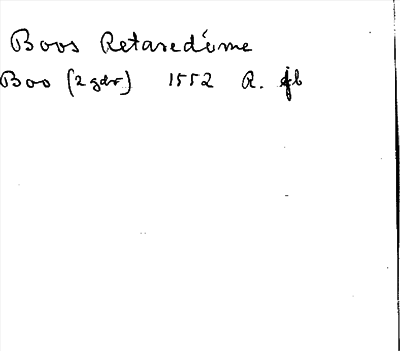 Boos Retaredöme
Boo (2 gdr) 1552 R. fb